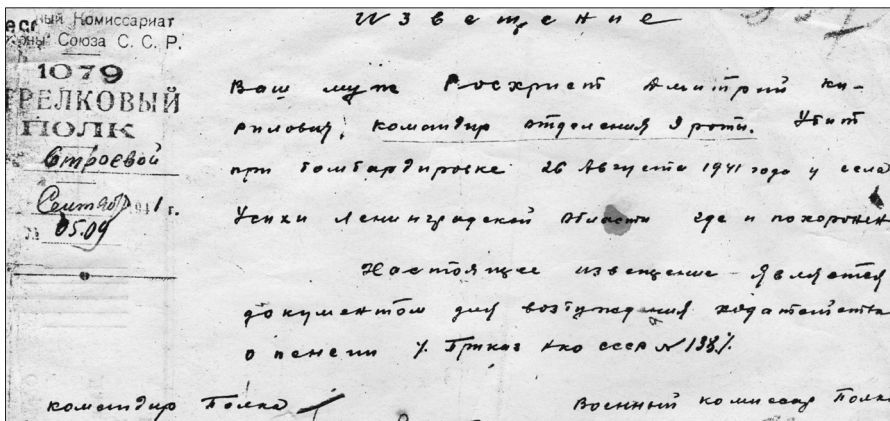 ный Комиссариат
роны Союза С. С. Р.
1079
ТРЕЛКОВЫЙ
ПОЛК
Строевой
Сентябр 1941 г.
№ 0509
Извещение
Ваш муж Росхрист Дмитрий ки-
рилович, командир отделения 9 роты. Убит
при бомбардировке 26 Августа 1941 года у села
Усихи Ленинградской области где и похоронен
Настоящее извещение является
документом для возбуждения ходатайства
о пенсии /. Приказ нко ссср № 138/.
командир Полка
Военный комиссар Полка